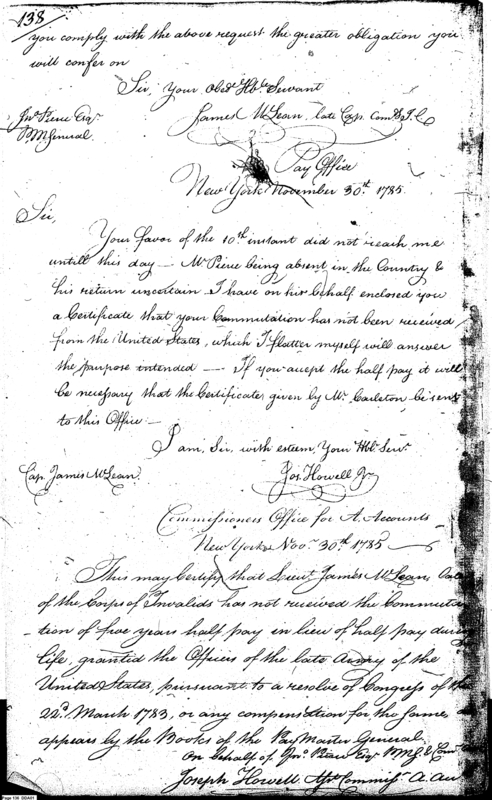 138
you comply with the above request the greater obligation you
will confer on
Sir, Your Obedt Hble Servant
James McLean, late Cap. Comdt I.C.
Jno. Pierce Esqr.
P.M General
Pay Office
New York November 30th. 1785.
Sir,
Your favor of the 10th instant did not reach me
untill this day — Mr Pierce being absent in the Country &
his return uncertain I have on his behalf enclosed you
a Certificate that your Commutation has not been received
from the United States, which I flatter myself will answer
the purpose intended — If you accept the half pay it will
be necessary that the Certificates given by Mr. Carleton be sent
to this Office —
I am, Sir, with esteem, Your Hble Servt.
Cap. James McLean.
Jos. Howell Jr
Commissioners Office for A. Accounts
New York Nov. 30th 1785
This may Certify that Lieut. James McLean,
of the Corps of Invalids has not received the Commuta
-tion of five years half pay in lieu of half pay during
life, granted the Officers of the late Army of the
United States, pursuant to a resolve of Congress of the
22d. March 1783, or any compensation for the same,
appears by the Books of the Pay Master General.
On behalf of Jno. Pierce Esqr. P.M.G. &
Joseph Howell Commissr A.
Page 138